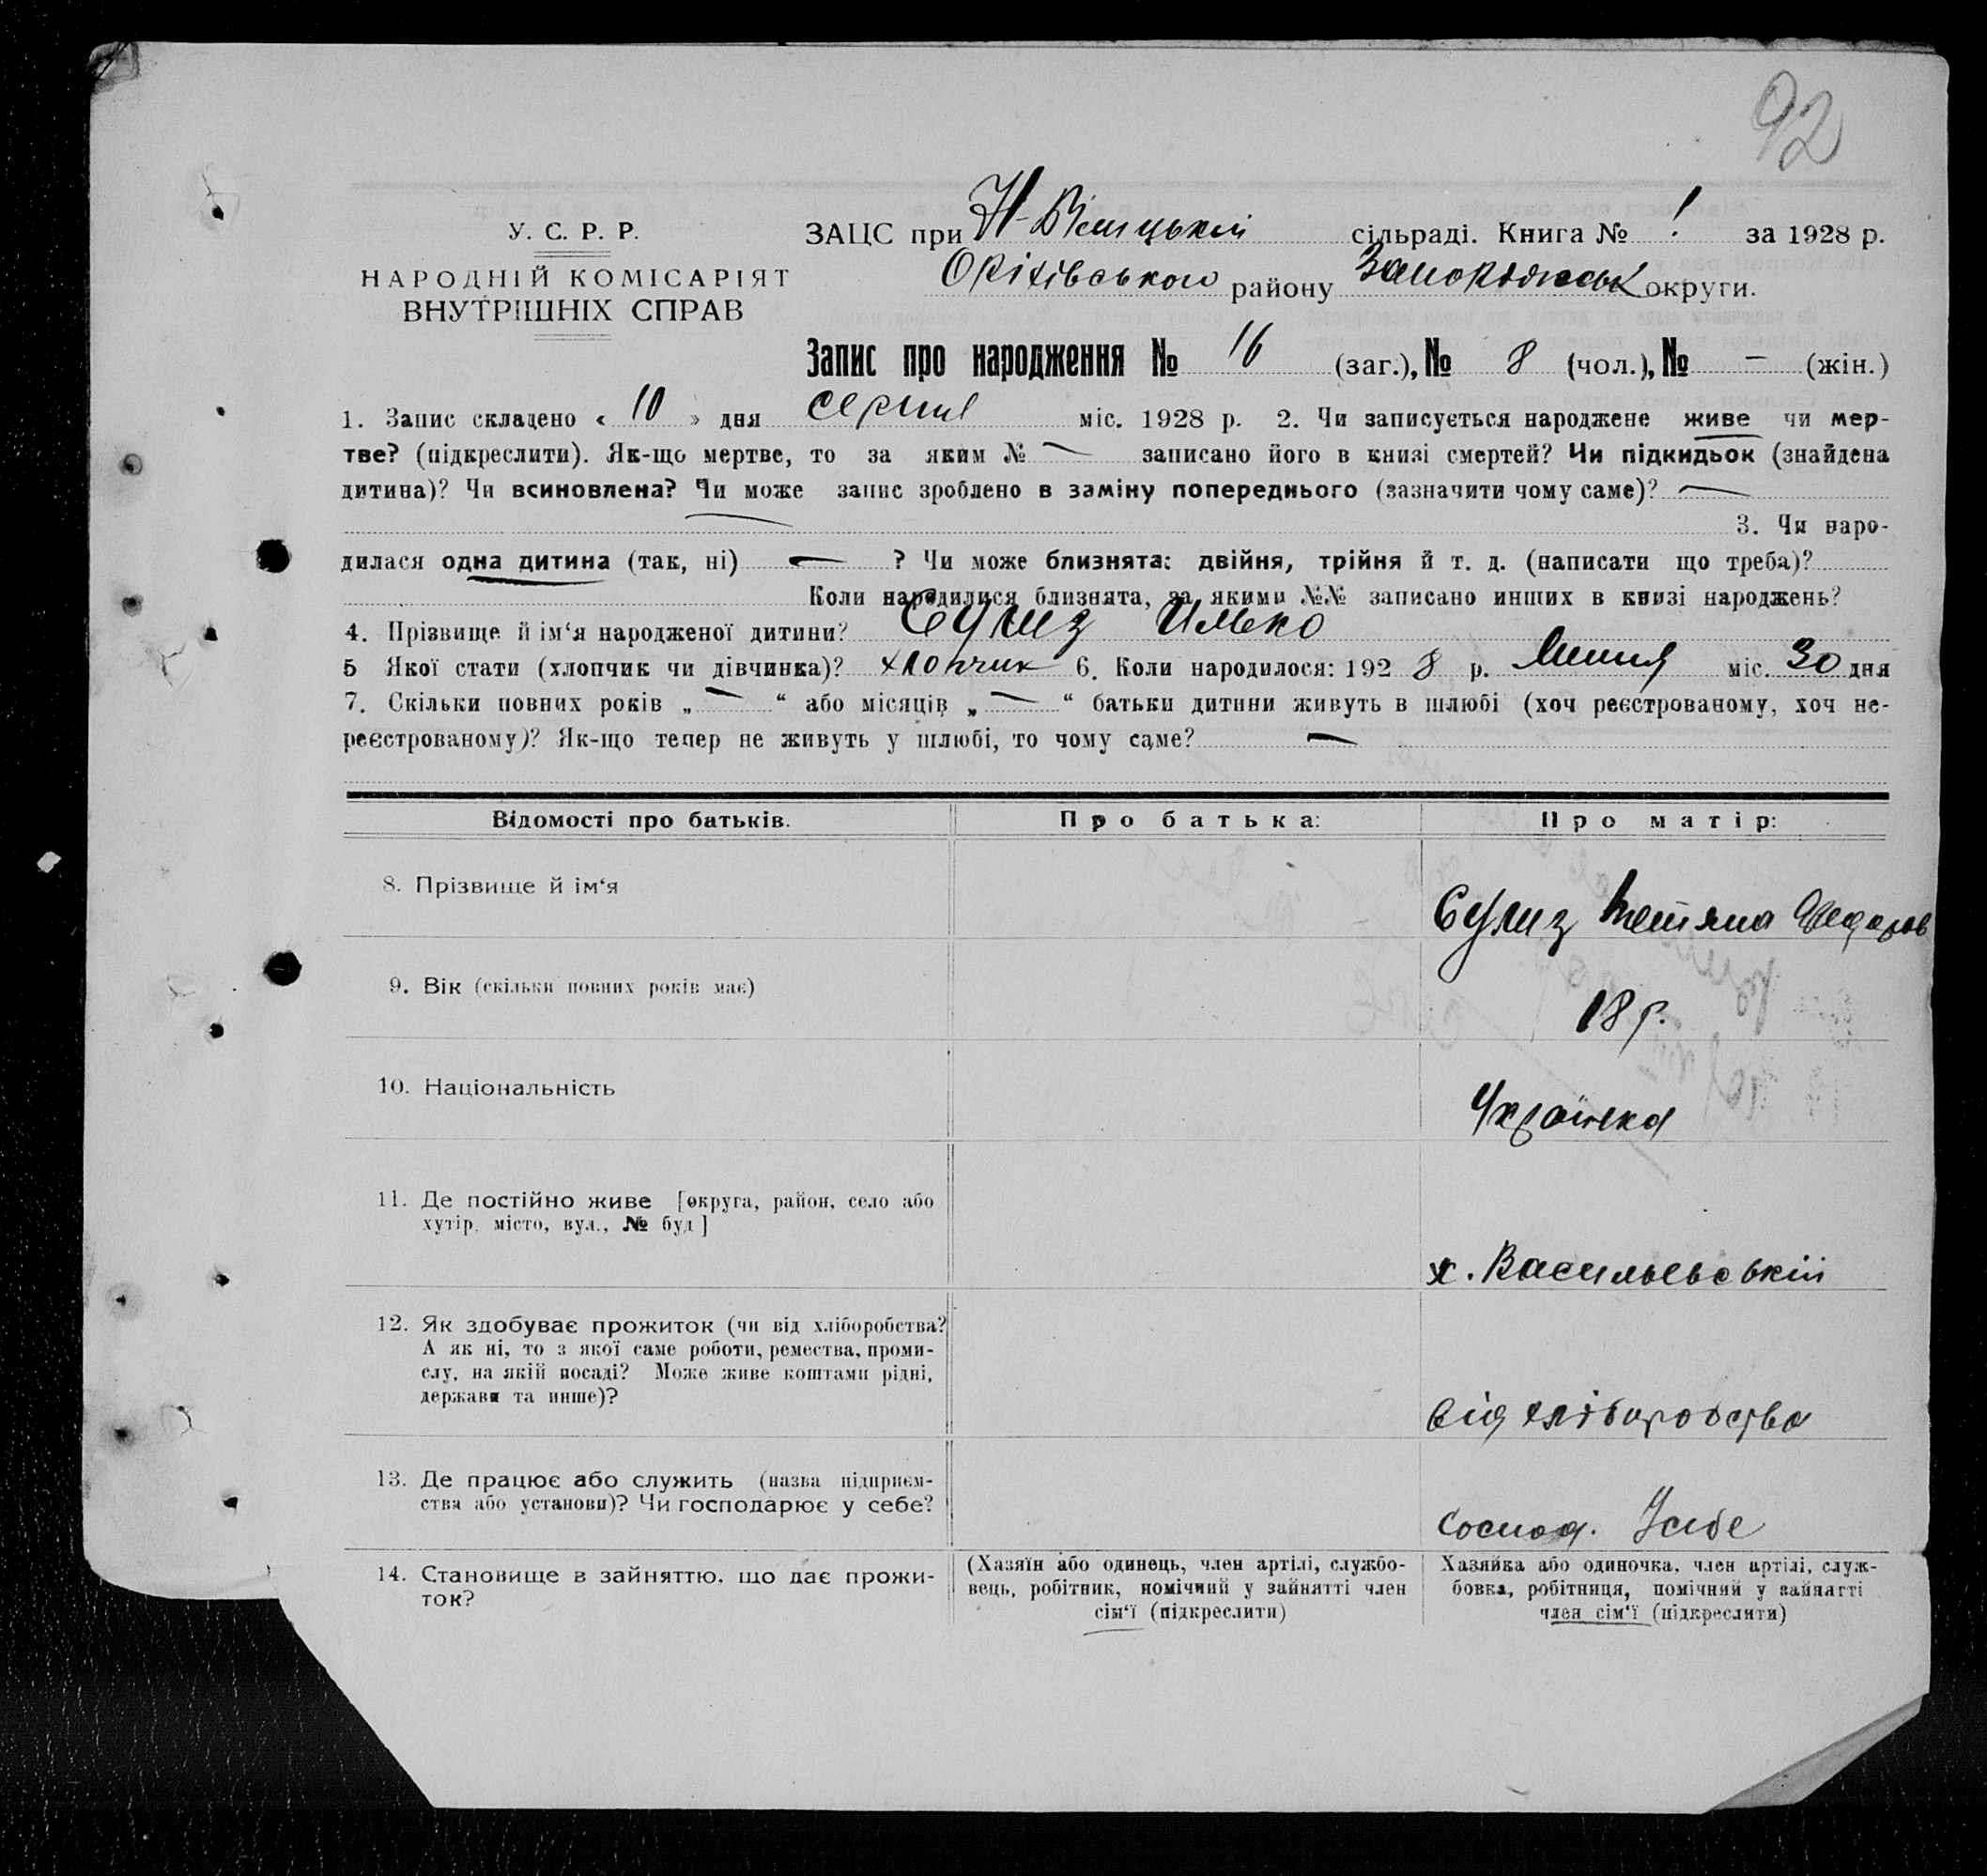 92
У. С. Р. Р.
НАРОДНІЙ КОМІСАРІЯТ
ВНУТРІШНІХ СПРАВ
ЗАЦС при Н- сільраді. Книга № 1 за 1928 р.
Оріхівського району Запоріжськ округи.
Запис про народження № 16 (заг.), № 8 (чол.), № — (жін.)
1. Запис складено « 10 » дня серпня міс. 1928 р. 2. Чи записується народжене живе чи мер-
тве? (підкреслити). Як-що мертве, то за яким № — записано його в книзі смертей? Чи підкидьок (знайдена
дитина)? Чи всиновлена? Чи може запис зроблено в заміну попереднього (зазначити чому саме)? —
3. Чи наро-
дилася одна дитина (так, ні) — ? Чи може близнята: двійня, трійня й т. д. (написати що треба)?
Коли народилися близнята, за якими №№ записано инших в книзі народжень?
4. Прізвище й ім‘я народженої дитини? Сулиз Илько
5 Якої стати (хлопчик чи дівчинка)? хлопчик 6. Коли народилося: 192 8 р. Липня міс. 30 дня
7. Скільки повних років „ — “ або місяців „ — “ батьки дитини живуть в шлюбі (хоч реєстрованому, хоч не-
реєстрованому)? Як-що тепер не живуть у шлюбі, то чому саме? —
Відомості про батьків. Про батька: Про матір:
8. Прізвище й ім‘я Сулиз Тетяна Федоров
9. Вік (скільки повних років має) 18 р.
10. Національність Українка
11. Де постійно живе [округа, район, село або
хутір, місто, вул., № буд] х. Васильевській
12. Як здобуває прожиток (чи від хліборобства?
А як ні, то з якої саме роботи, ремества, проми-
слу, на якій посаді? Може живе коштами рідні,
держави та инше)? від хліборобства
13. Де працює або служить (назва підприєм-
ства або установи)? Чи господарює у себе? Господ. У себе
14. Становище в зайняттю, що дає прожи-
ток?
(Хазяїн або одинець, член артілі, службо-
вець, робітник, помічний у зайнятті член
сім‘ї (підкреслити)
Хазяйка або одиночка, член артілі, служ-
бовка, робітниця, помічний у зайнятті
член сім‘ї (підкреслити)